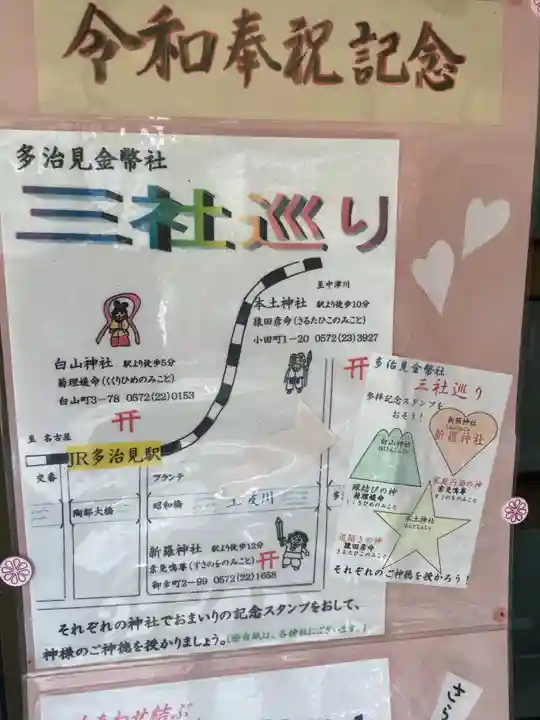 令和奉祝記念
多治見金幣社
三社巡り
至中津川
本土神社 駅より徒歩10分
猿田彦命(さるたひこのみこと)
小田町1-20 0572(23)3927
白山神社 駅より徒歩5分
菊理媛命(くくりひめのみこと)
白山町3-78 0572(22)0153
至 名古屋
JR多治見駅
交番
フランテ
陶都大橋
昭和橋
土岐川
多
新羅神社 駅より徒歩12分
素戔嗚尊(すさのをのみこと)
御幸町2-99 0572(22)1658
それぞれの神社でおまいりの記念スタンプをおして、
神様のご神徳を授かりましょう。(※台紙は、各神社にございます。)
多治見金幣社
三社巡り
参拝記念スタンプを
おそう!
白山神社
はくさんじんじゃ
新羅神社
新羅神社
縁結びの神
菊理媛命
くくりひめのみこと
家庭円満の神
素戔嗚尊
すさのをのみこと
本土神社
ほんどじんじゃ
道開きの神
猿田彦命
さるたひこのみこと
それぞれのご神徳を授かろう!